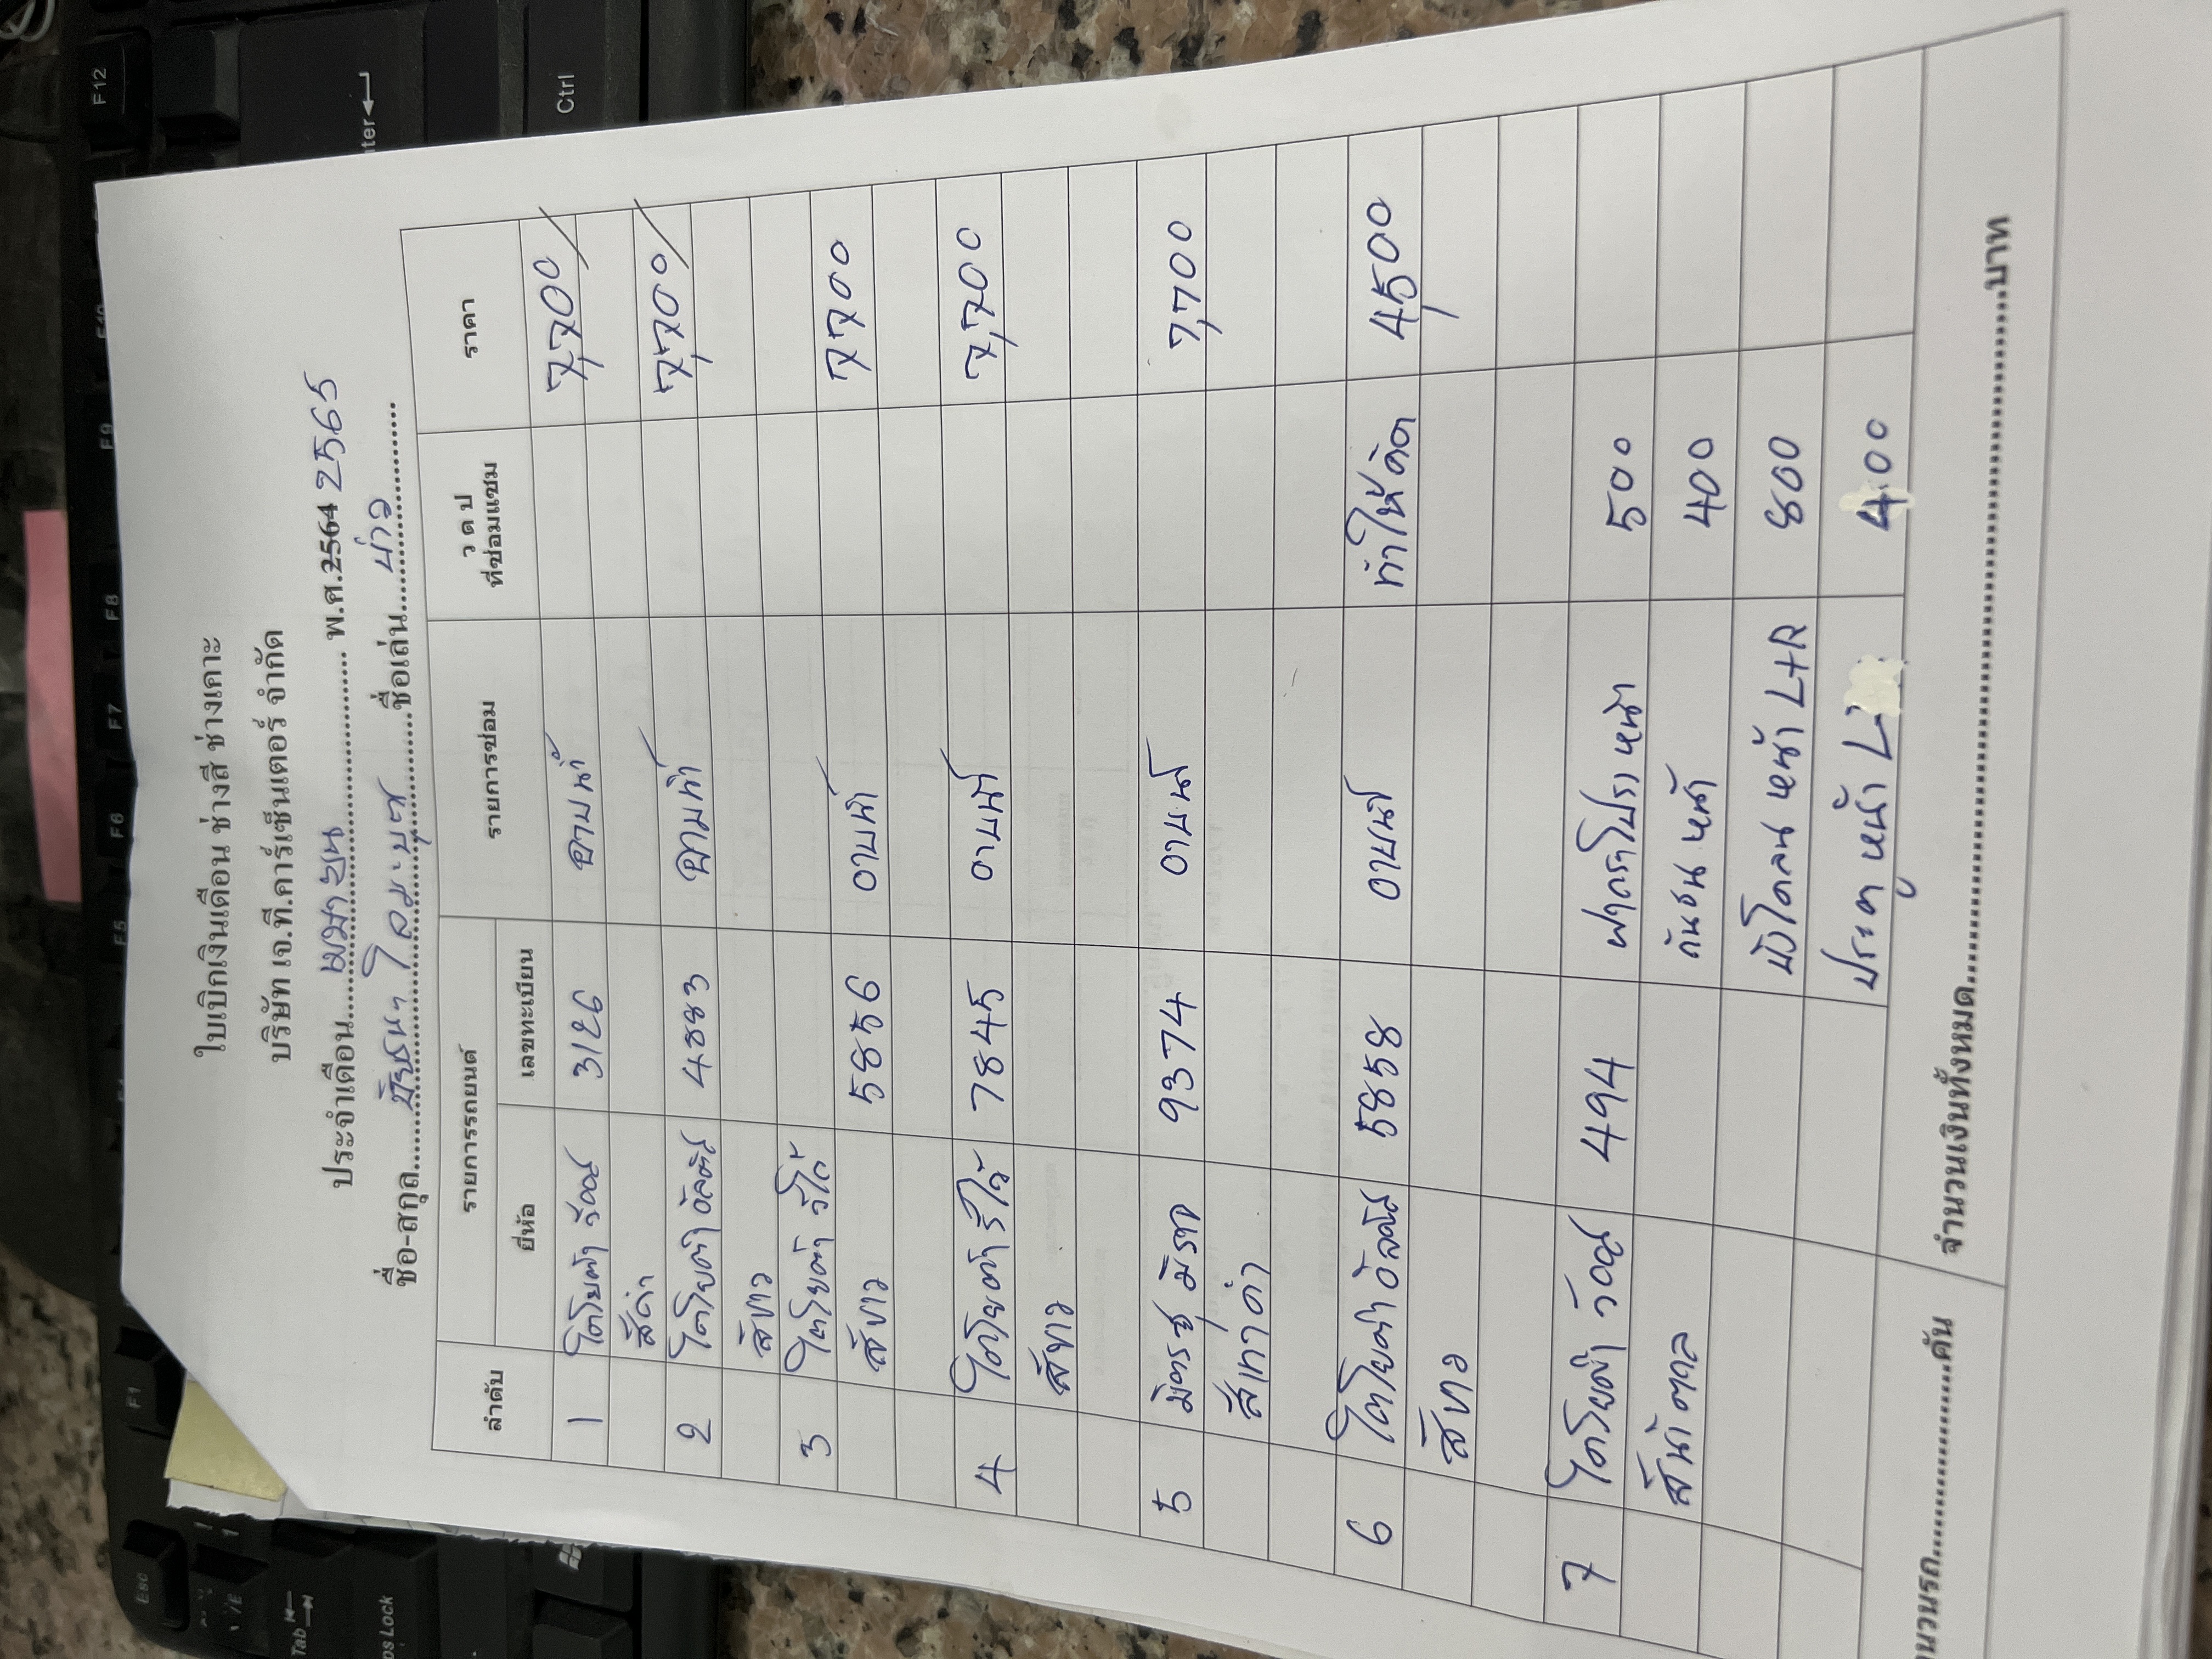 ใบเบิกเงินเดือน ช่างสี ช่างเคาะ
บริษัท เจ.ที.คาร์เซ็นเตอร์ จำกัด
ประจำเดือน....เมษายน.... พ.ศ.2564 2565
ชื่อ-สกุล........ชื่อเล่น....
ลำดับ รายการรถยนต์ รายการซ่อม ว ด ป ที่ซ่อมแซม ราคา
ยี่ห้อ เลขทะเบียน
1 โตโยต้า วีออส 3126 อาบน้ำ 7,700
สีดำ
2 โตโยต้า อัลติส 4883 อาบน้ำ 7,700
สีขาว
3 โตโยต้า วีโก้ 7700
สีขาว 5856 อาบน้ำ
4 โตโยต้า รีโว้ 7845 อาบน้ำ 7,700
สีขาว
5 มิตซู มิราจ 9374 อาบน้ำ 7,700
สีเทาดำ
6 โตโยต้า อัลติส 5858 อาบน้ำ ทำให้คิด 4,500
สีขาว
7 โตโยต้า วีออส 494 ฝากระโปรง หน้า 500
สีน้ำตาล กันชน หน้า 400
บังโคลน หน้า L+R 800
ประตู หน้า L 400
นวนรถ....คัน จำนวนเงินทั้งหมด....บาท
Esc
F1
F5
F6
F7
F8
F9
F12
Tab
Ctrl